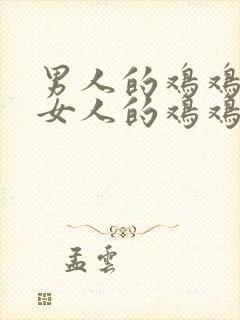 男人的鸡鸡
女人的鸡鸡
孟雲